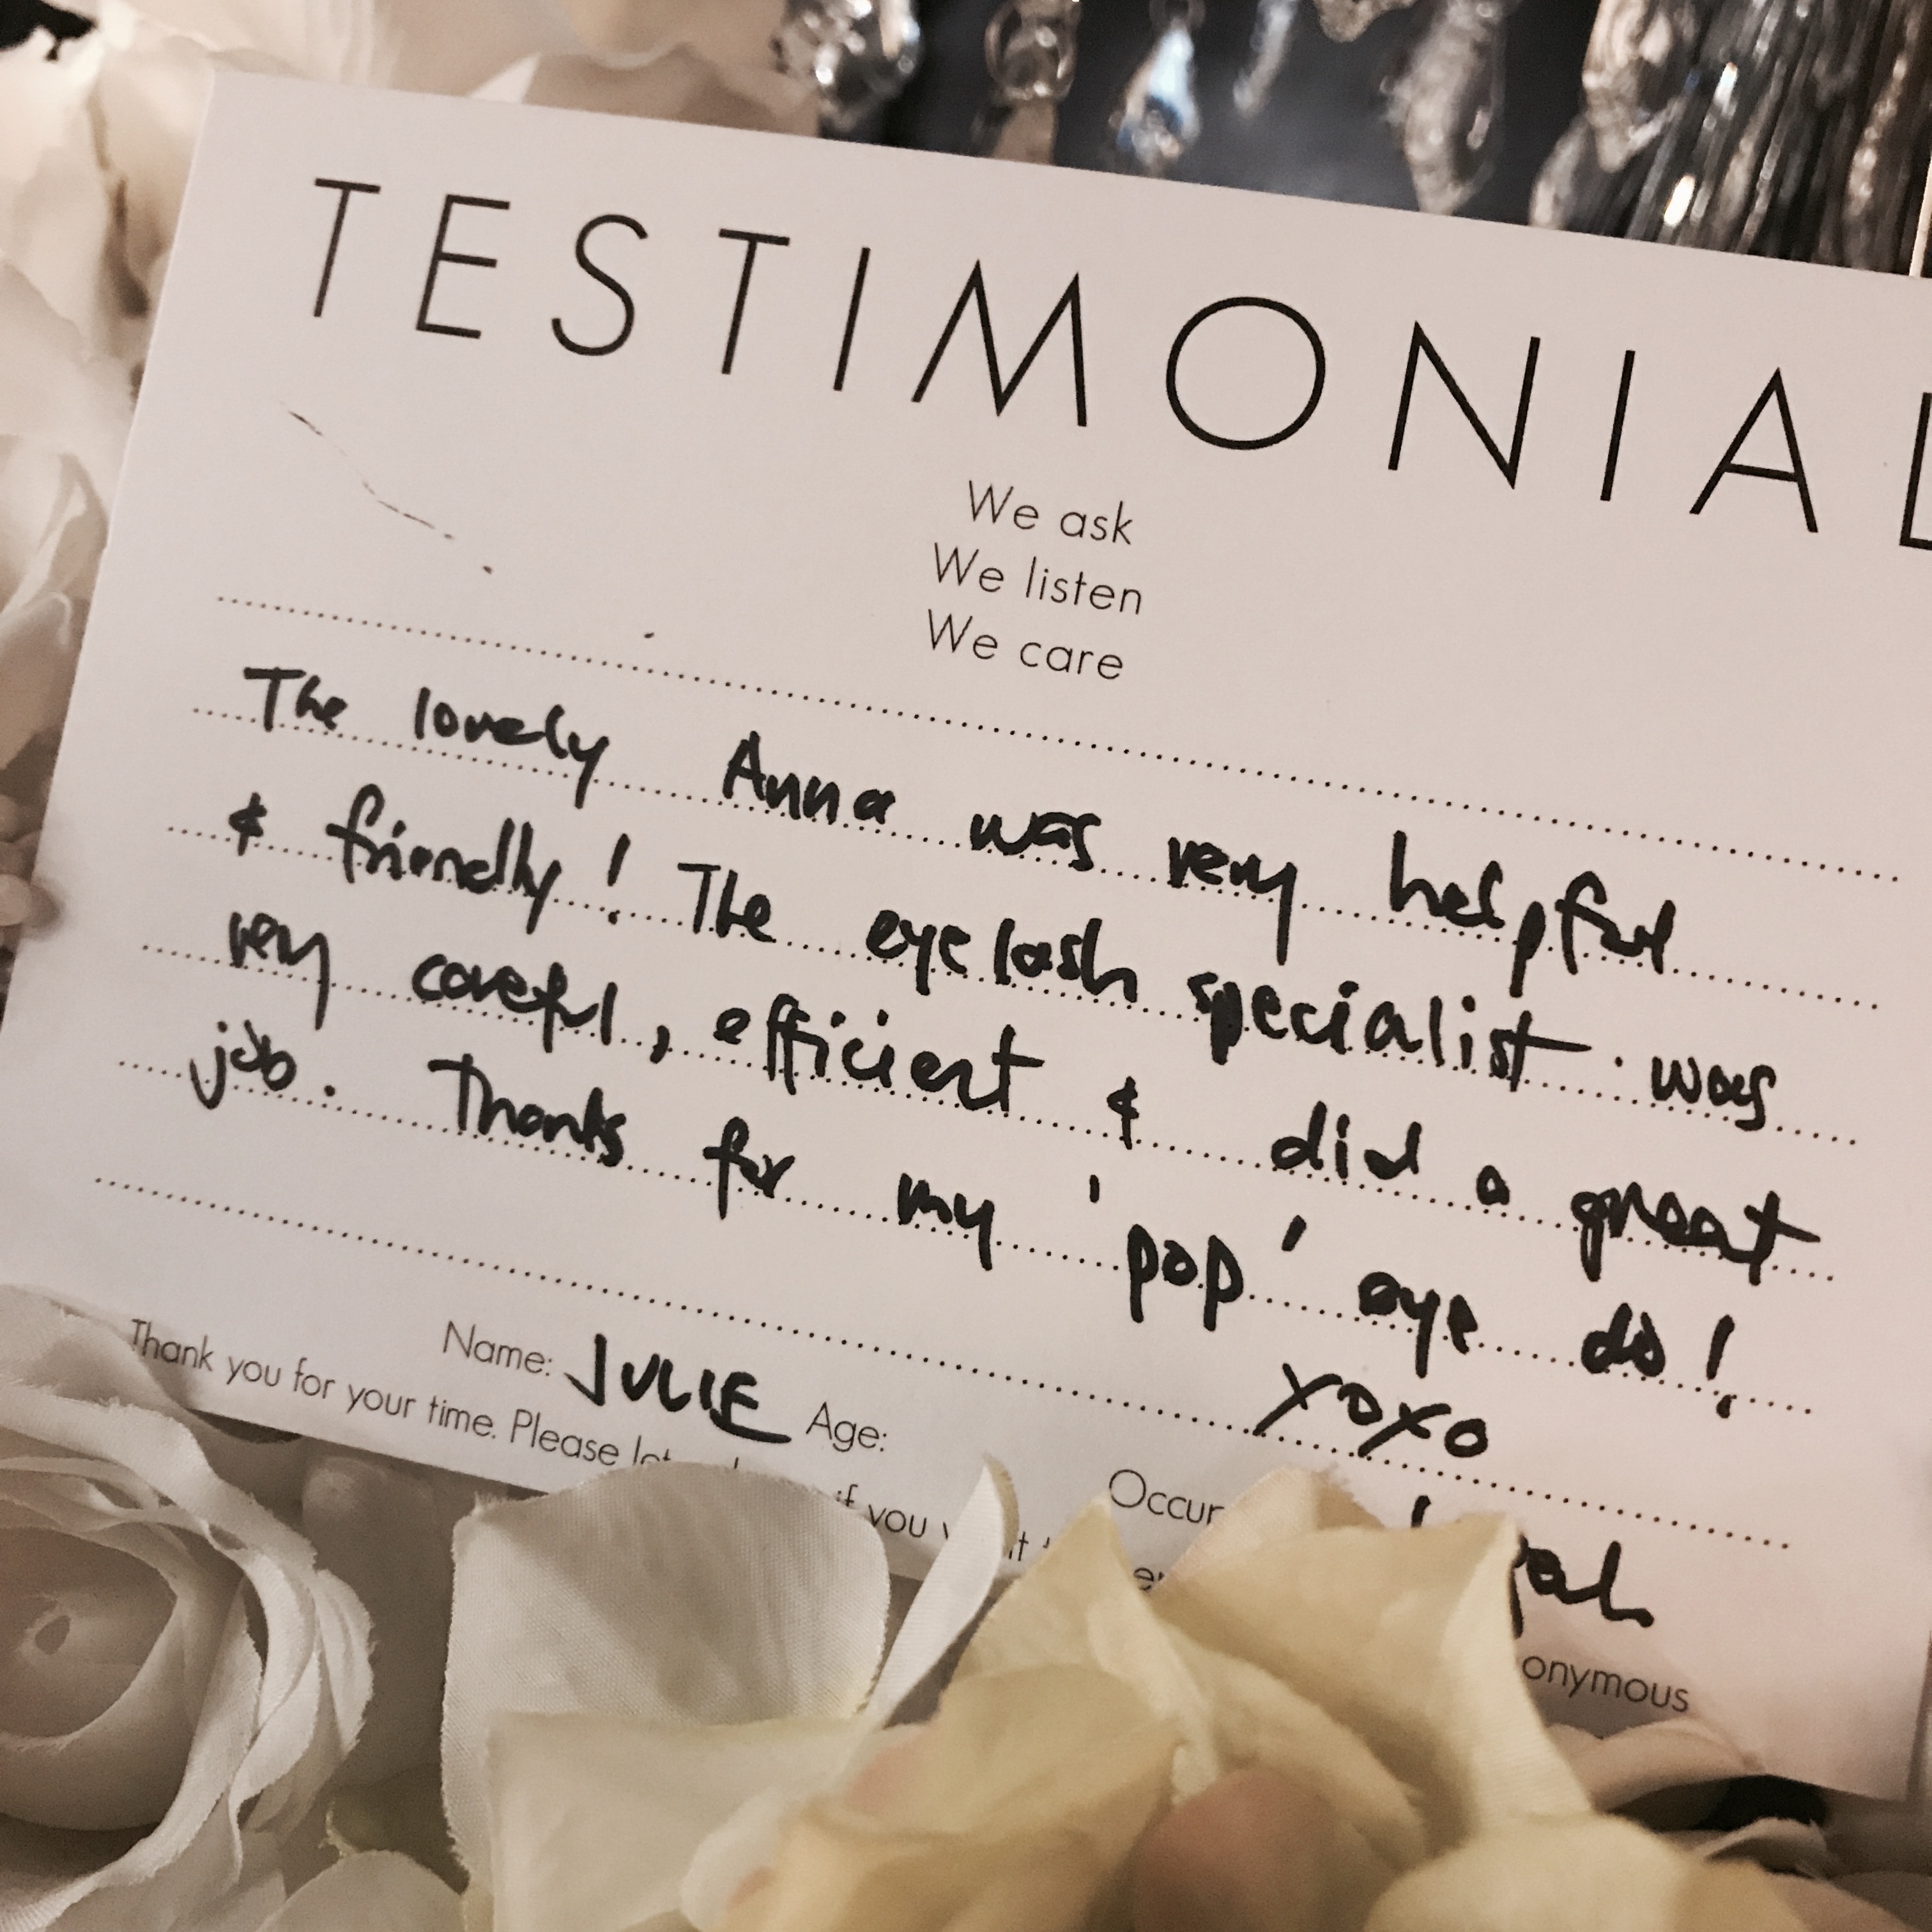 TESTIMONIAL
We ask
We listen
We care
The lovely Anna was very helpful
& friendly! The eyelash specialist was
very careful, efficient & did a great
job. Thanks for my 'pop' eye do!
xoxo
Name: JULIE Age:
Thank you for your time. Please if you